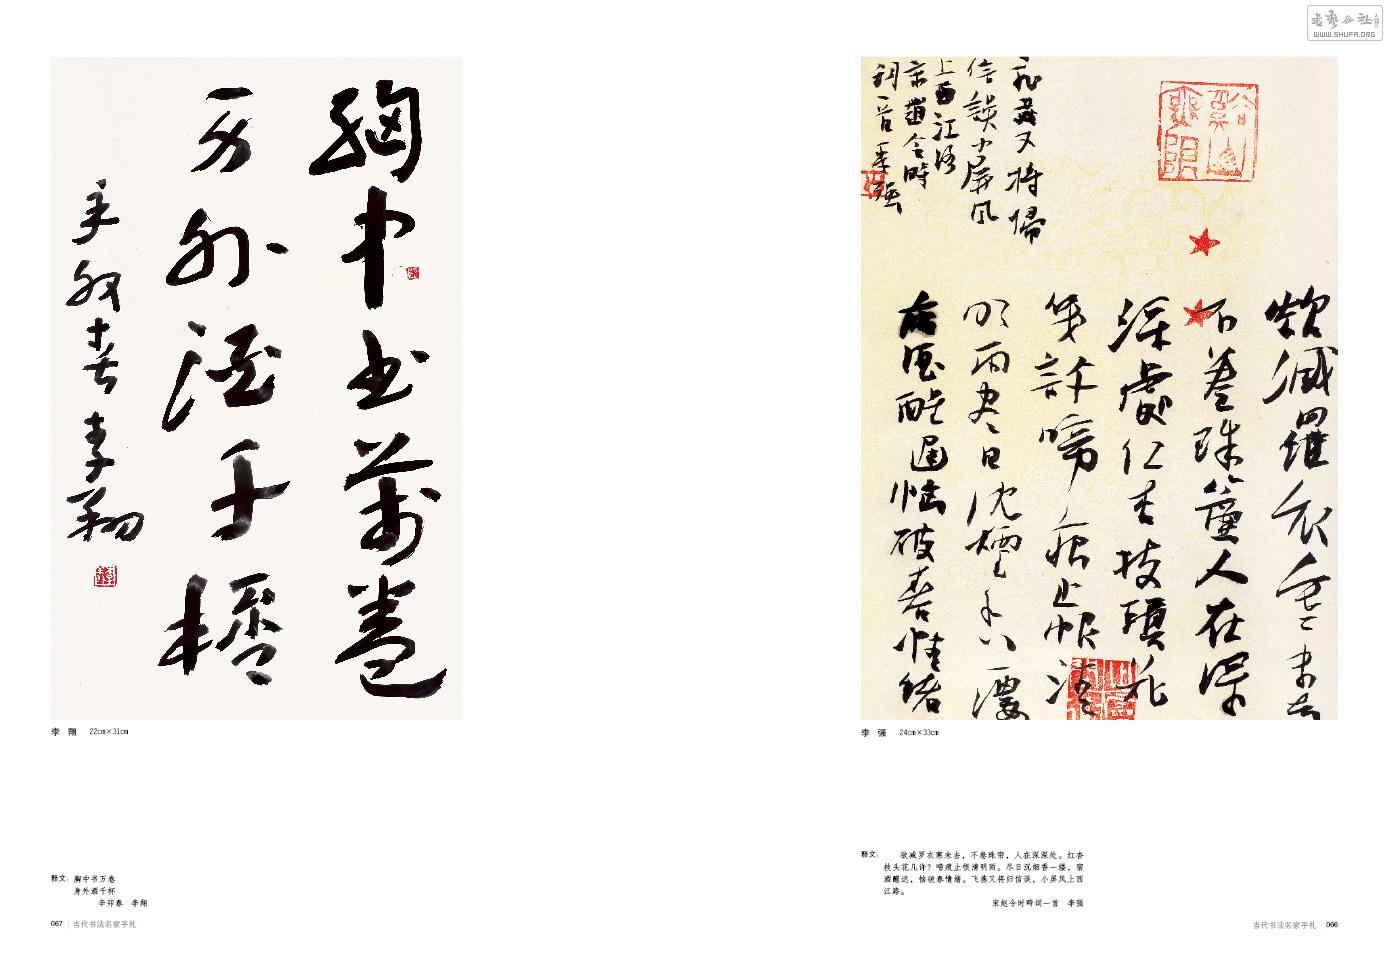 书艺公社
WWW.SHUFA.ORG
胸中书萬卷
身外酒千桮
辛卯春李翔
李 翔 22cm×31cm
释文：胸中书万卷
身外酒千杯
辛卯春 李翔
067 当代书法名家手札
欲減羅衣寒未去
不卷珠簾人在深
深處红杏枝頭花
幾許啼痕止恨清
明雨尽日沈煙香一縷
宿酒醒遲惱破春情緒
飛燕又將歸
信誤小屏風
上西江路
宋趙令時
詞一首李强
李 强 24cm×33cm
释文：欲减罗衣寒未去，不卷珠帘，人在深深处。红杏
枝头花几许？啼痕止恨清明雨。尽日沉烟香一缕，宿
酒醒迟，恼破春情绪。飞燕又将归信误，小屏风上西
江路。
宋赵令时畤词一首 李强
当代书法名家手札 066